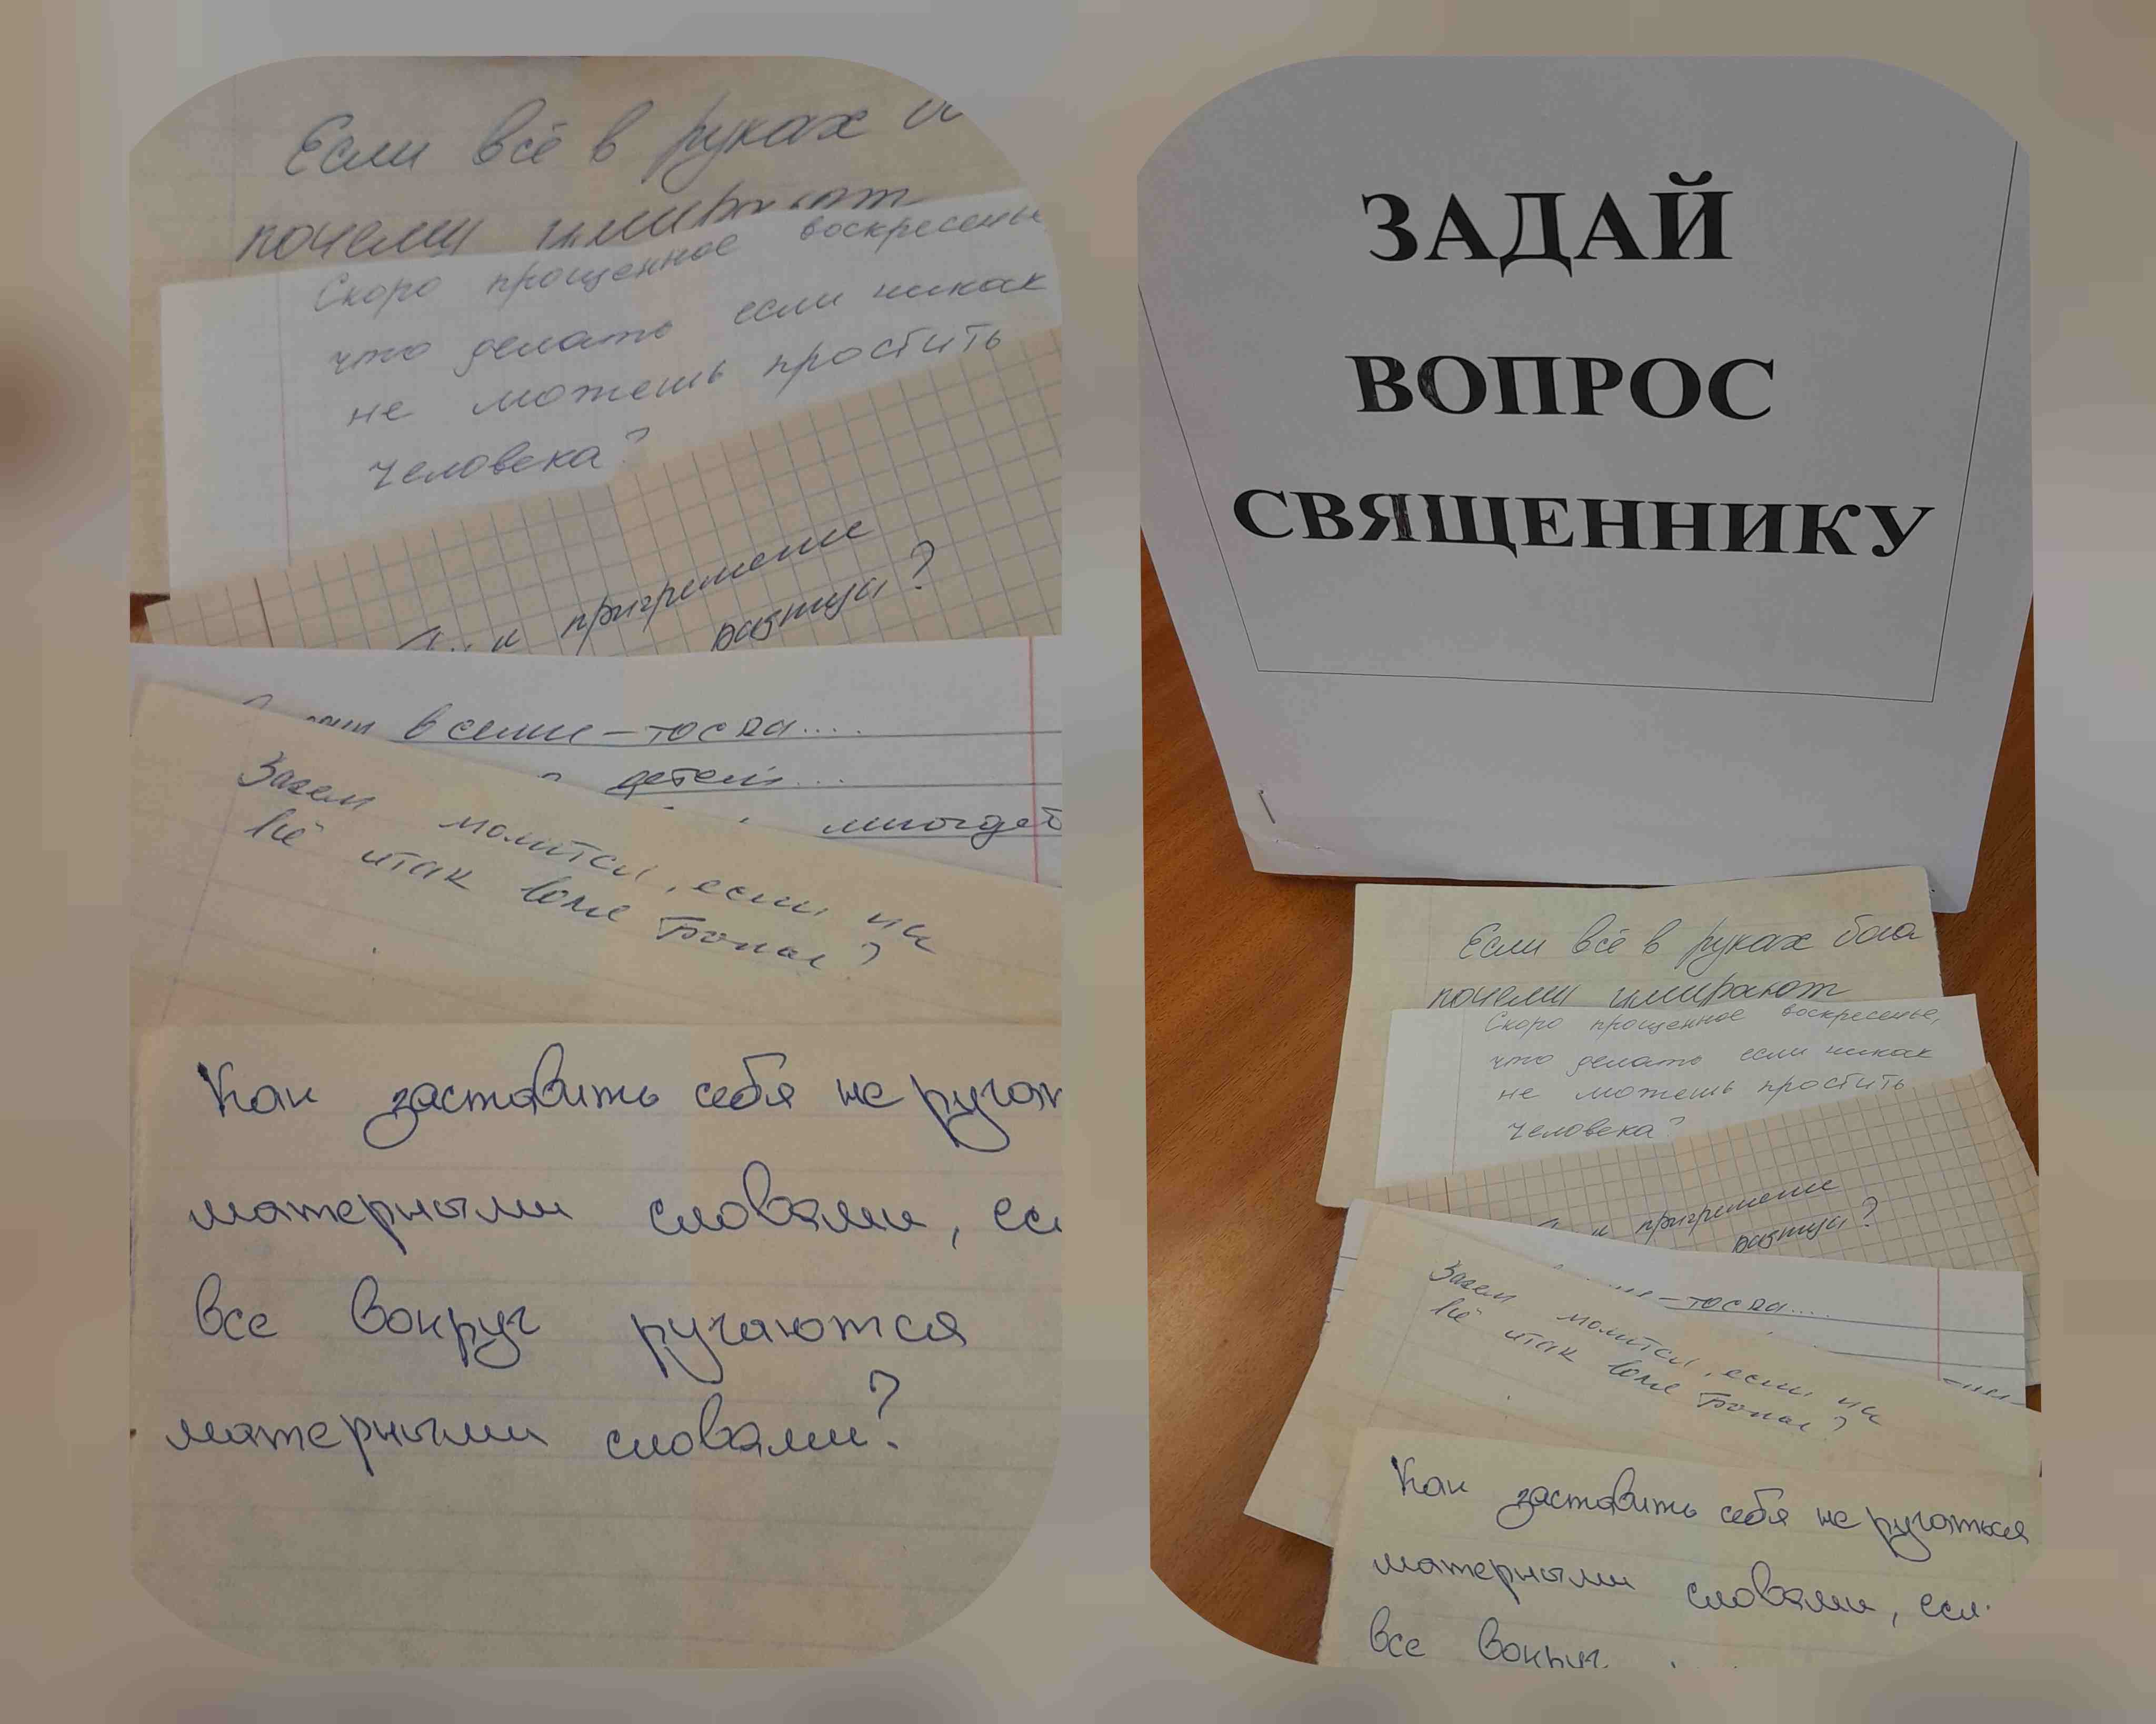 Если всё в руках
почему умирают
Скоро прощенное воскресенье
что делать если никак
не можешь простить
человека?
пригрешение
в семье – тоска....
детей...
многдет
Зачем молится, если на
всё итак воля Божья?
Как заставить себя не ругат
матерными словами, ес
все вокруг ругаются
матерными словами?
ЗАДАЙ
ВОПРОС
СВЯЩЕННИКУ
Если всё в руках бога
почему умирают
Скоро прощенное воскресенье,
что делать если никак
не можешь простить
человека?
пригрешение
– тоска....
Зачем молится, если на
всё итак воля Божья?
Как заставить себя не ругаться
матерными словами, есл
все вокруг